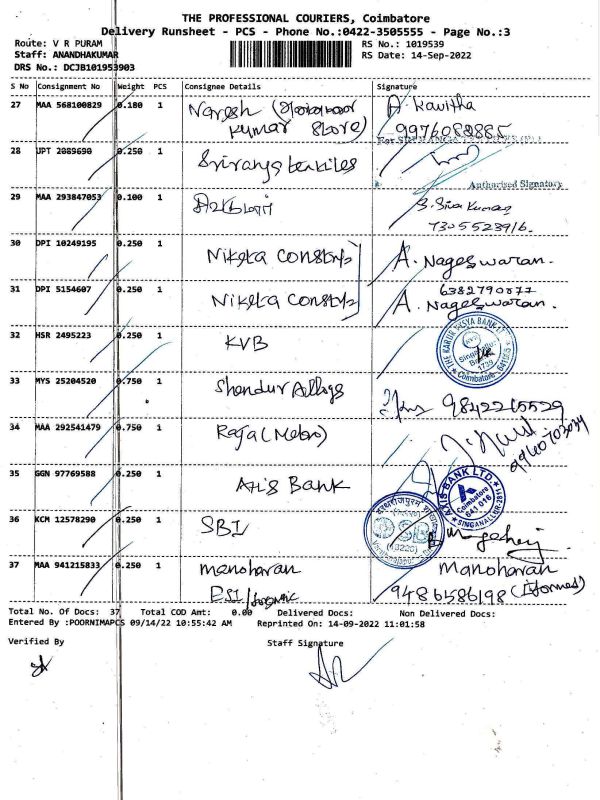 THE PROFESSIONAL COURIERS, Coimbatore
Delivery Runsheet - PCS - Phone No.:0422-3505555 - Page No.:3
Route: V R PURAM
Staff: ANANDHAKUMAR
DRS No.: DCJB101953903
RS No.: 1019539
RS Date: 14-Sep-2022
S No Consignment No Weight PCS Consignee Details Signature
27 MAA 568100829 0.180 1 Naresh A. Kavitha
Kumar Store) 9976082885
28 UPT 2089690 0.250 1 Sriranga textiles
Authorised Signatory
29 MAA 293847053 0.100 1 S. Siva Kumar
7305523916.
30 DPI 10249195 0.250 1 Niketa Constr A. Nageswaran.
6382790877
31 DPI 5154607 0.250 1 Niketa Constr A. Nageswaran.
32 HSR 2495223 0.250 1 KVB
THE KARUR VYSYA BANK LT
Coimbatore 641005
33 MYS 25204520 0.750 1 Shandur Alloys 9842215529
34 MAA 292541479 0.750 1 Raja (Metro)
35 GGN 97769588 0.250 1 Axis Bank
AXIS BANK LTD.
Coimbatore
641 018
SINGANALLUR
36 KCM 12578290 0.250 1 SBI
37 MAA 941215833 0.250 1 Manoharan Manoharan
ESI 9486586198 (Informed)
Total No. Of Docs: 37 Total COD Amt: 0.00 Delivered Docs: Non Delivered Docs:
Entered By :POORNIMAPCS 09/14/22 10:55:42 AM Reprinted On: 14-09-2022 11:01:58
Verified By Staff Signature